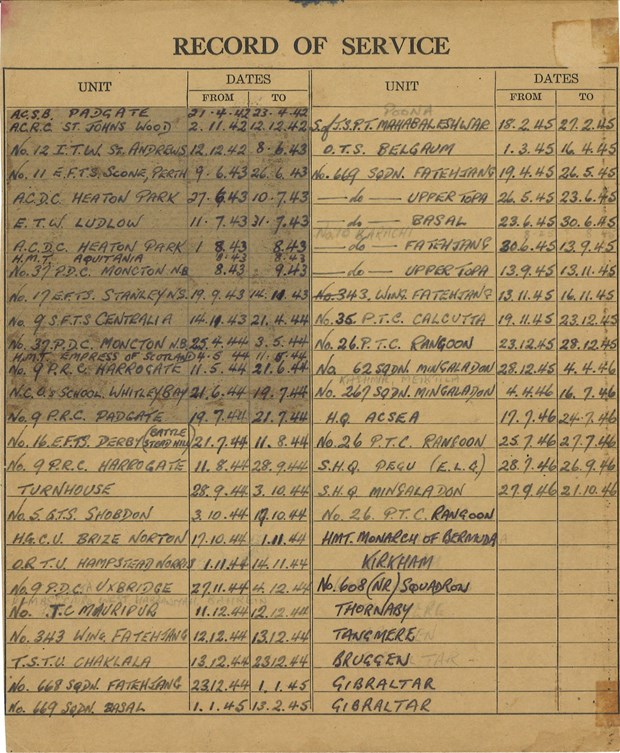 RECORD OF SERVICE
UNIT DATES FROM TO
A.C.S.B. PADGATE 21.4.42 23.4.42
A.C.R.C. ST. JOHNS WOOD 2.11.42 12.12.42
No. 12 I.T.W. St. ANDREWS 12.12.42 8.6.43
No. 11 E.F.T.S. SCONE, PERTH 9.6.43 26.6.43
A.C.D.C. HEATON PARK 27.6.43 10.7.43
E.T.W. LUDLOW 11.7.43 31.7.43
A.C.D.C. HEATON PARK 1 8.43 8.43
H.M.T. AQUITANIA 8.43 8.43
No. 37 P.D.C. MONCTON N.B. 8.43 9.43
No. 17 E.F.T.S. STANLEY N.S. 19.9.43 14.11.43
No. 9 S.F.T.S CENTRALIA 14.11.43 21.4.44
No. 37. P.D.C. MONCTON N.B. 25.4.44 3.5.44
H.M.T. EMPRESS OF SCOTLAND 4.5.44 11.5.44
No. 9 P.R.C. HARROGATE 11.5.44 21.6.44
N.C.O.'s SCHOOL. WHITLEY BAY 21.6.44 19.7.44
No. 9 P.R.C. PADGATE 19.7.44 21.7.44
No. 16. E.F.T.S. DERBY (BATTLE STEAD HILL) 21.7.44 11.8.44
No. 9 P.R.C. HARROGATE 11.8.44 28.9.44
TURNHOUSE 28.9.44 3.10.44
No. 5. G.T.S. SHOBDON 3.10.44 17.10.44
H.G.C.U. BRIZE NORTON 17.10.44 1.11.44
O.R.T.U. HAMPSTEAD NORRIS 1.11.44 14.11.44
No. 9 P.D.C. UXBRIDGE 27.11.44 4.12.44
No. T.C MAURIPUR 11.12.44 12.12.44
No. 343 WING. FATEHJANG 12.12.44 13.12.44
T.S.T.U. CHAKLALA 13.12.44 23.12.44
No. 668 SQDN. FATEHJANG 23.12.44 1.1.45
No. 669 SQDN. BASAL 1.1.45 13.2.45
UNIT DATES FROM TO
POONA
S. of J.S.P.T. MAHABALESHWAR 18.2.45 27.2.45
O.T.S. BELGAUM 1.3.45 16.4.45
No. 669 SQDN. FATEHJANG 19.4.45 26.5.45
— do — UPPER TOPA 26.5.45 23.6.45
— do — BASAL 23.6.45 30.6.45
No 10 KARACHI
— do — FATEHJANG 30.6.45 13.9.45
— do — UPPER TOPA 13.9.45 13.11.45
No. 343. WING. FATEHJANG 13.11.45 16.11.45
No. 35 P.T.C. CALCUTTA 19.11.45 23.12.45
No. 26. P.T.C. RANGOON 23.12.45 28.12.45
No 62 SQDN. MINGALADON 28.12.45 4.4.46
KASHMIR, MEIKTILA
No. 267 SQDN. MINGALADON 4.4.46 16.7.46
H.Q ACSEA 17.7.46 24.7.46
No. 26 P.T.C. RANGOON 25.7.46 27.7.46
S.H.Q PEGU (E.L.Q.) 28.7.46 26.9.46
S.H.Q MINGALADON 27.9.46 21.10.46
No. 26. P.T.C. RANGOON
HMT. MONARCH OF BERMUDA
KIRKHAM
No. 608 (NR) SQUADRON
THORNABY
TANGMERE
BRUGGEN
GIBRALTAR
GIBRALTAR